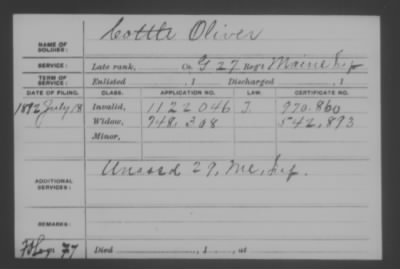 Cottle Oliver
NAME OF SOLDIER:
SERVICE: Late rank, Co. G 27 Reg't Maine Inf
TERM OF SERVICE: Enlisted , 1 Discharged , 1
DATE OF FILING. CLASS. APPLICATION NO. LAW. CERTIFICATE NO.
1892 July 18 Invalid, 1122046 J 970.860
Widow, 748,308 542,893
Minor,
ADDITIONAL SERVICES: Unassd 29, Me. Inf.
REMARKS:
Died , 1 , at